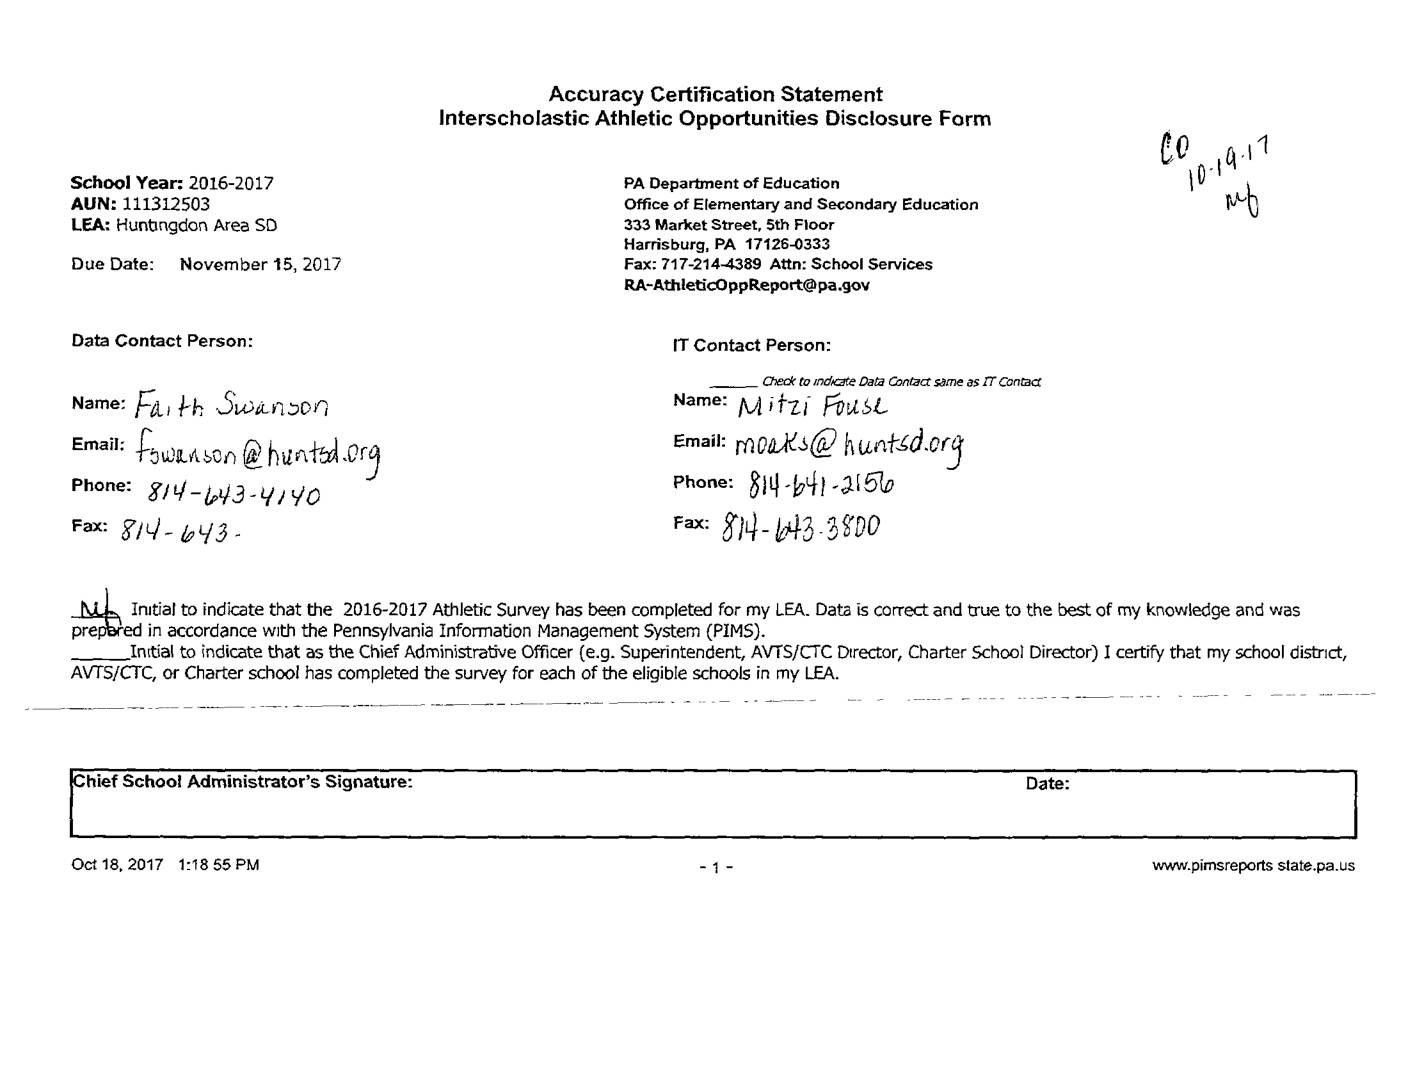 Accuracy Certification Statement
Interscholastic Athletic Opportunities Disclosure Form
CO
10-19-17
mf
School Year: 2016-2017
AUN: 111312503
LEA: Huntingdon Area SD
Due Date: November 15, 2017
PA Department of Education
Office of Elementary and Secondary Education
333 Market Street, 5th Floor
Harrisburg, PA 17126-0333
Fax: 717-214-4389 Attn: School Services
RA-AthleticOppReport@pa.gov
Data Contact Person:
Name: Faith Swanson
Email: fswanson@huntsd.org
Phone: 814-643-4140
Fax: 814-643-
IT Contact Person:
______ Check to indicate Data Contact same as IT Contact
Name: Mitzi Fouse
Email: moaks@huntsd.org
Phone: 814-641-2156
Fax: 814-643-3800
mf Initial to indicate that the 2016-2017 Athletic Survey has been completed for my LEA. Data is correct and true to the best of my knowledge and was
prepared in accordance with the Pennsylvania Information Management System (PIMS).
______Initial to indicate that as the Chief Administrative Officer (e.g. Superintendent, AVTS/CTC Director, Charter School Director) I certify that my school district,
AVTS/CTC, or Charter school has completed the survey for each of the eligible schools in my LEA.
Chief School Administrator's Signature: Date:
Oct 18, 2017 1:18 55 PM - 1 - www.pimsreports state.pa.us